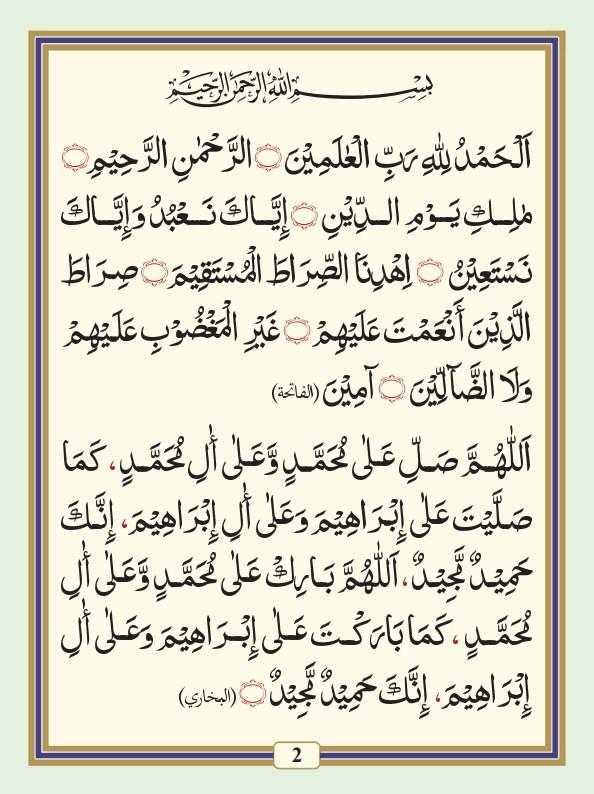 بِسْمِ اللهِ الرَّحْمٰنِ الرَّحِيْمِ
اَلْحَمْدُ لِلّٰهِ رَبِّ الْعٰلَمِيْنَ ۝ الرَّحْمٰنِ الرَّحِيْمِ ۝
مٰلِكِ يَوْمِ الدِّيْنِ ۝ إِيَّاكَ نَعْبُدُ وَإِيَّاكَ
نَسْتَعِيْنُ ۝ اِهْدِنَا الصِّرَاطَ الْمُسْتَقِيْمَ ۝ صِرَاطَ
الَّذِيْنَ أَنْعَمْتَ عَلَيْهِمْ ۝ غَيْرِ الْمَغْضُوْبِ عَلَيْهِمْ
وَلَا الضَّآلِّيْنَ ۝ آمِيْنَ (الفاتحة)
اَللّٰهُمَّ صَلِّ عَلٰى مُحَمَّدٍ وَّعَلٰى أٰلِ مُحَمَّدٍ، كَمَا
صَلَّيْتَ عَلٰى إِبْرَاهِيْمَ وَعَلٰى أٰلِ إِبْرَاهِيْمَ، إِنَّكَ
حَمِيْدٌ مَّجِيْدٌ، اَللّٰهُمَّ بَارِكْ عَلٰى مُحَمَّدٍ وَّعَلٰى أٰلِ
مُحَمَّدٍ، كَمَا بَارَكْتَ عَلٰى إِبْرَاهِيْمَ وَعَلٰى أٰلِ
إِبْرَاهِيْمَ، إِنَّكَ حَمِيْدٌ مَّجِيْدٌ ۝ (البخاري)
2